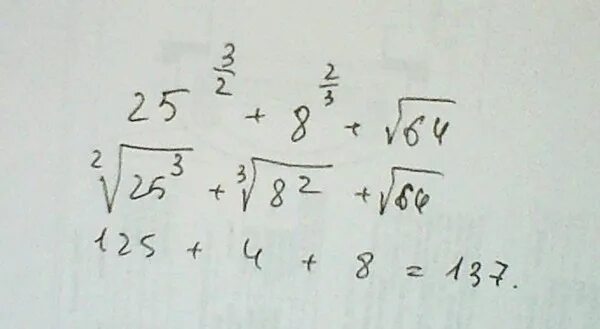 25^{3/2} + 8^{2/3} + √64
²√25³ + ³√8² + √64
125 + 4 + 8 = 137.